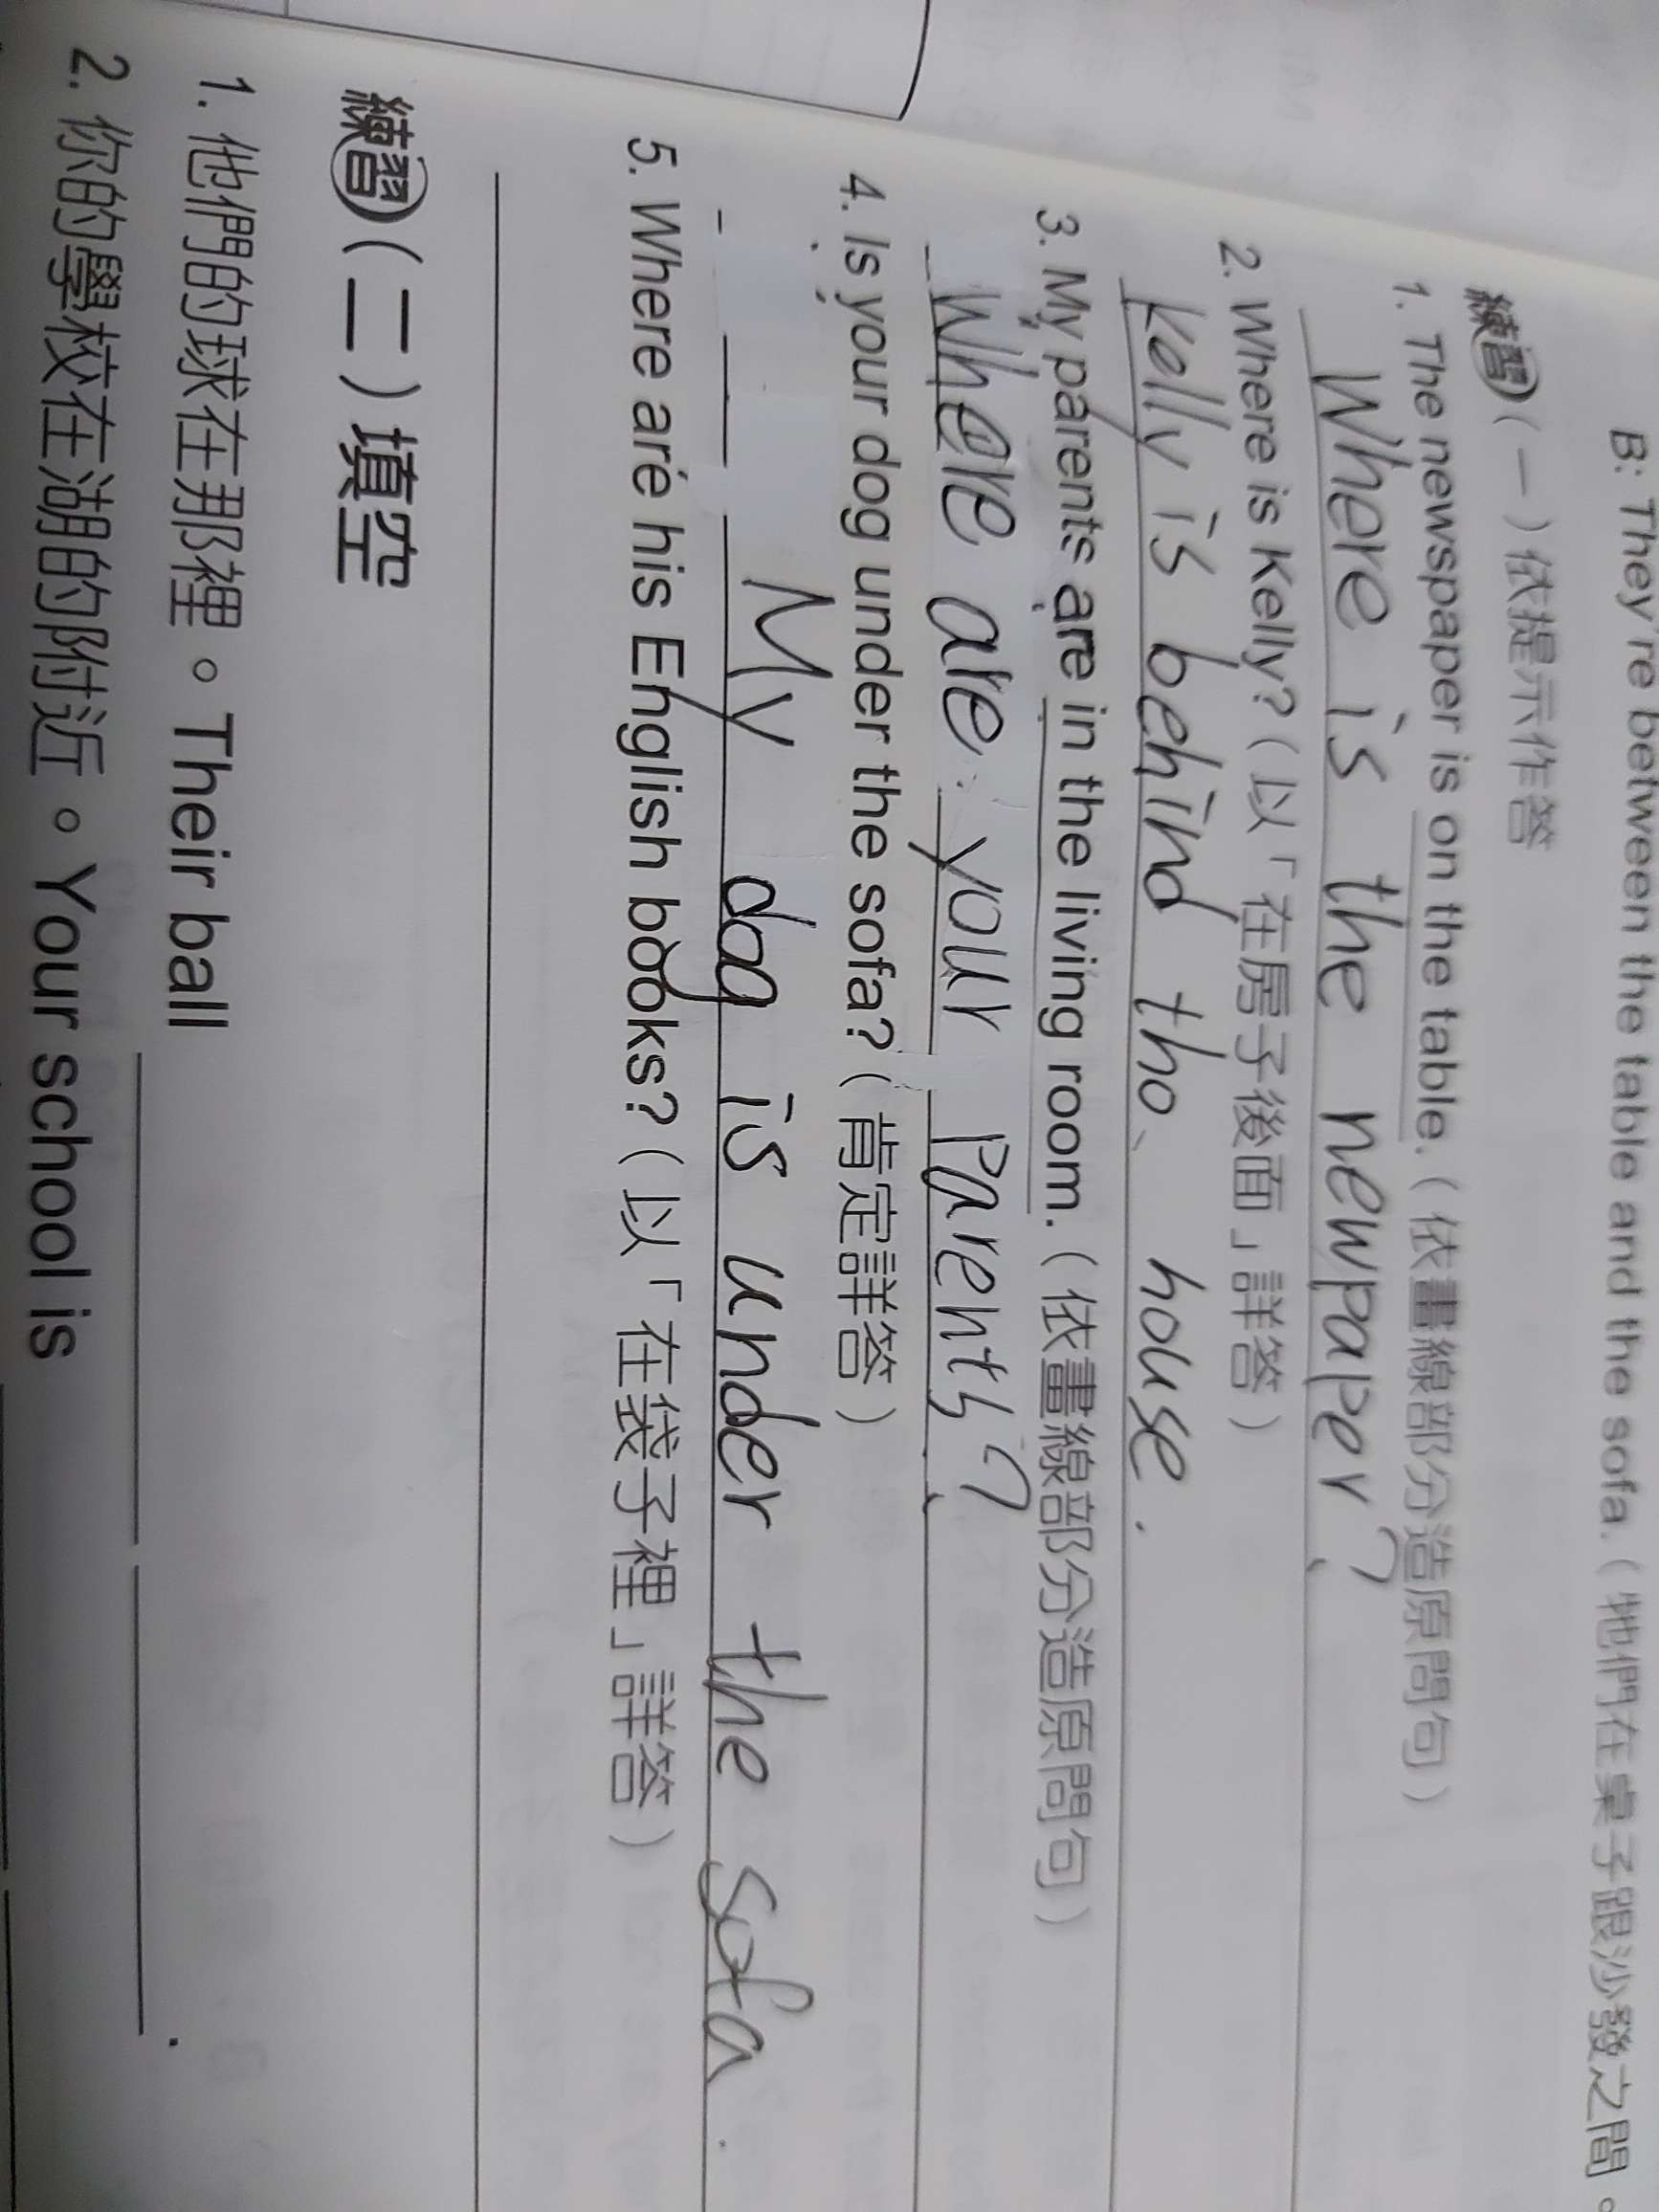 B: They're between the table and the sofa.(牠們在桌子跟沙發之間。
練習(一)依提示作答
1. The newspaper is on the table.(依畫線部分造原問句)
Where is the newpaper?
2. Where is Kelly?(以「在房子後面」詳答)
kelly is behind the house.
3. My parents are in the living room.(依畫線部分造原問句)
Where are your parents?
4. Is your dog under the sofa?(肯定詳答)
My dog is under the sofa.
5. Where are his English books?(以「在袋子裡」詳答)
練習(二)填空
1. 他們的球在那裡。Their ball
2. 你的學校在湖的附近。Your school is